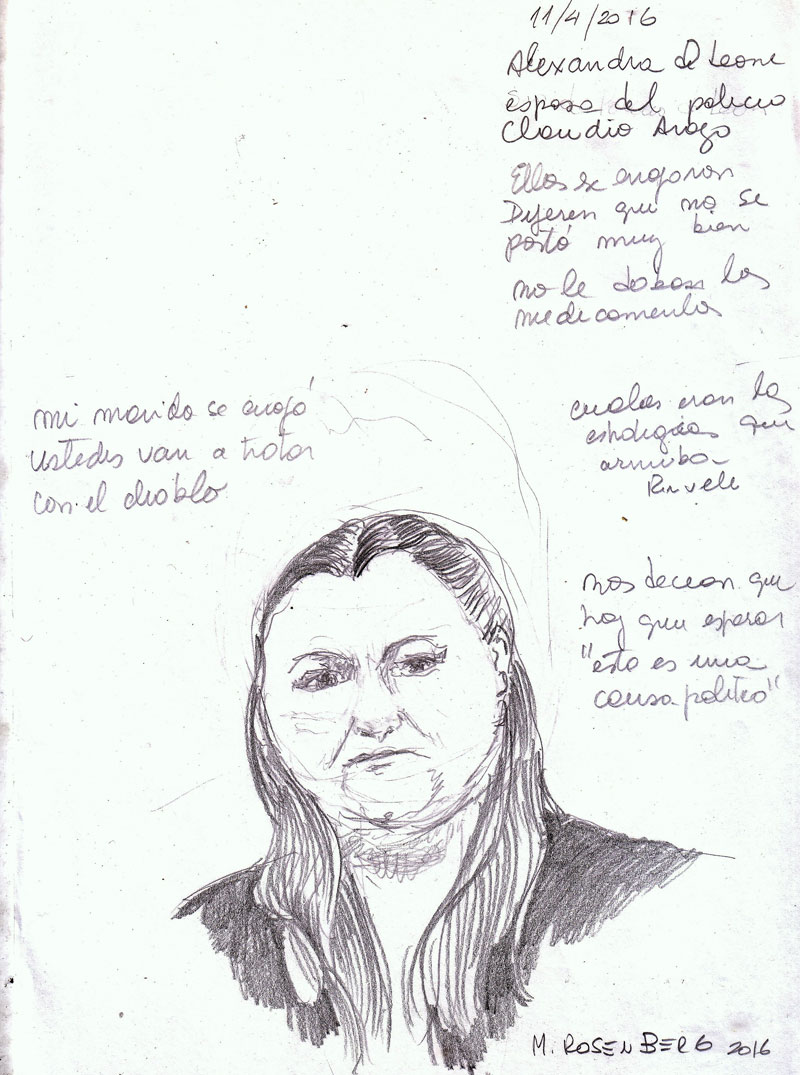 11/4/2016
Alexandra de Leone
esposa del policia
Claudio Arago
Ellos se enojaron
Dijeron que no se
portó muy bien
no le daban los
medicamentos
mi marido se enojó
ustedes van a tratar
con el diablo
cuales eran las
que
armaba
nos decian que
hay que esperar
"esta es una
causa politica"
M. ROSENBERG 2016